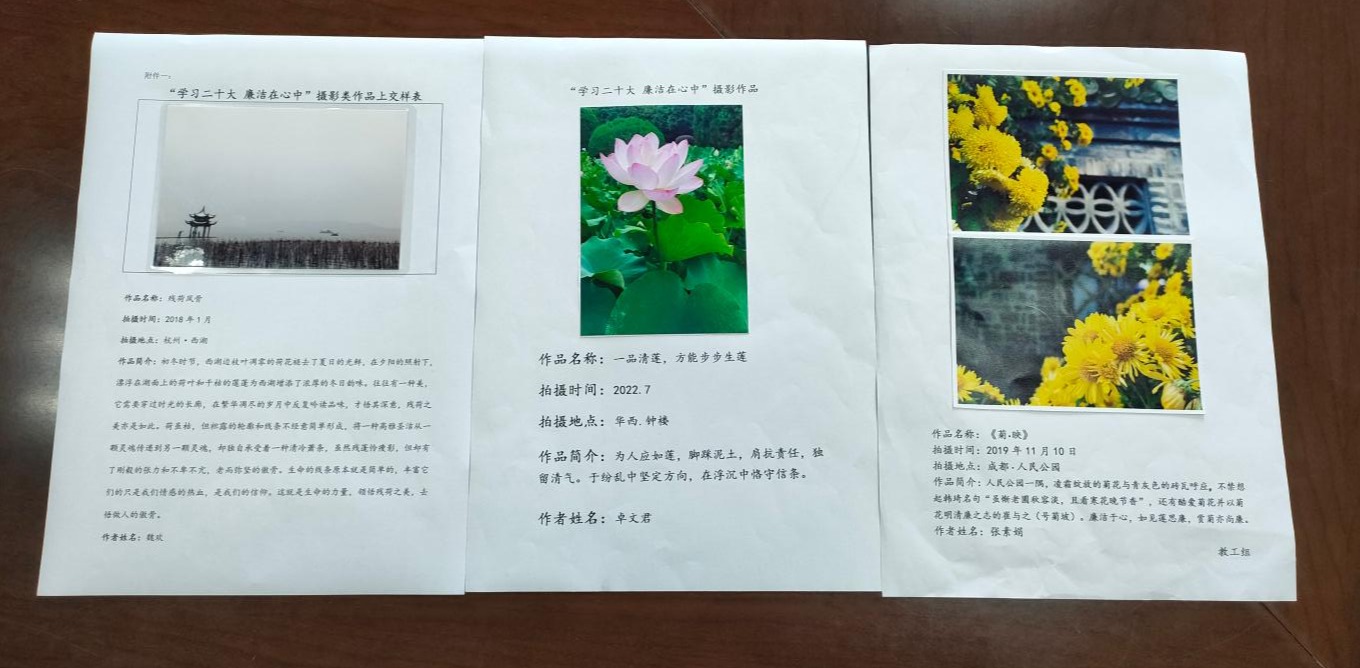 附件一:
“学习二十大 廉洁在心中”摄影类作品上交样表
作品名称: 残荷风骨
拍摄时间: 2018 年 1 月
拍摄地点: 杭州·西湖
作品简介: 初冬时节, 西湖边枝叶凋零的荷花褪去了夏日的光鲜, 在夕阳的照射下,
漂浮在湖面上的荷叶和干枯的莲蓬为西湖增添了浓厚的冬日韵味。往往有一种美,
它需要穿过时光的长廊, 在繁华凋尽的岁月中反复吟读品味, 才悟其深意, 残荷之
美亦是如此。荷虽枯, 但裸露的轮廓和线条不经意简单形成, 将一种高雅圣洁从一
颗灵魂传递到另一颗灵魂, 却独自承受着一种清冷萧条, 虽然残莲怜瘦影, 但却有
了刚毅的张力和不卑不亢, 老而弥坚的傲骨。生命的线条原本就是简单的, 丰富它
们的只是我们情感的热血, 是我们的信仰。这就是生命的力量, 领悟残荷之美, 去
悟做人的傲骨。
作者姓名: 魏欢
“学习二十大 廉洁在心中”摄影作品
作品名称: 一品清莲, 方能步步生莲
拍摄时间: 2022.7
拍摄地点: 华西.钟楼
作品简介: 为人应如莲, 脚踩泥土, 肩抗责任, 独
留清气。于纷乱中坚定方向, 在浮沉中恪守信条。
作者姓名: 卓文君
作品名称: 《菊·映》
拍摄时间: 2019 年 11 月 10 日
拍摄地点: 成都·人民公园
作品简介: 人民公园一隅, 凌霜绽放的菊花与青灰色的砖瓦呼应。不禁想
起韩琦名句“虽惭老圃秋容淡, 且看寒花晚节香”, 还有酷爱菊花并以菊
花明清廉之志的崔与之(号菊坡)。廉洁于心, 如见莲思廉, 赏菊亦向廉。
作者姓名: 张素娟
教工组